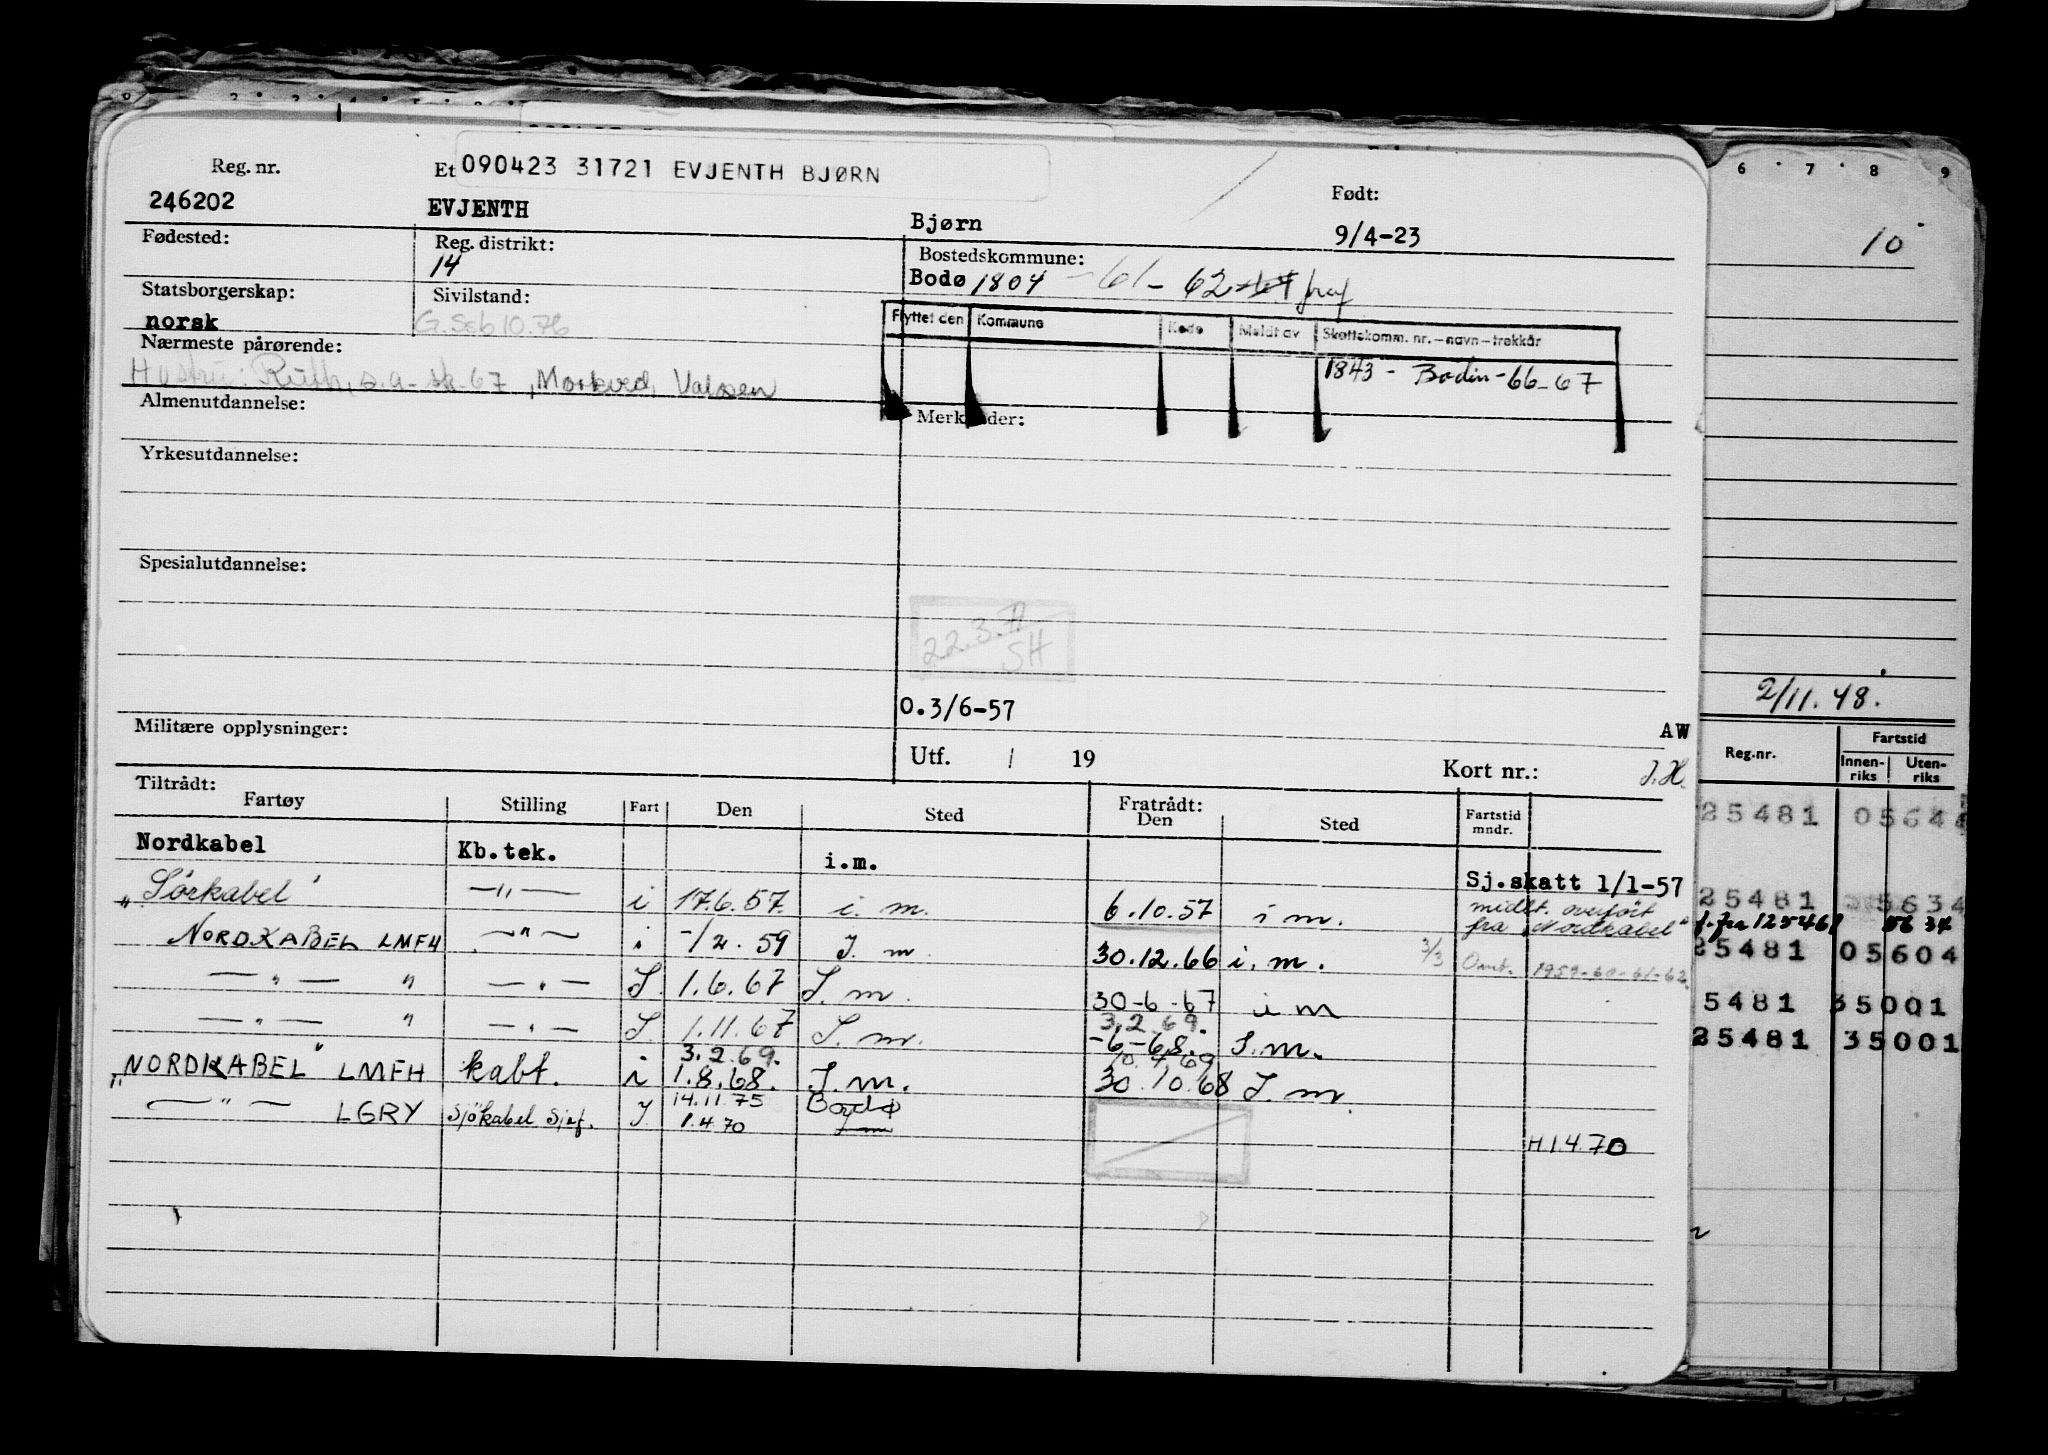 Reg. nr.
Et 090423 31721 EVJENTH BJØRN
Født:
246202 EVJENTH Bjørn 9/4-23
Fødested: Reg. distrikt: Bostedskommune:
14 Bodø 1804 - 61 - 62
Statsborgerskap: Sivilstand:
norsk G. Seb 10.76
Flyttet den Kommune Kode Meldt av Skattekomm. nr. - navn - trekkår
1843 - Bodin - 66-67
Nærmeste pårørende:
Hustru: Ruth, s.a. - sk-67, Mørkved, Valosen
Almenutdannelse: Merknader:
Yrkesutdannelse:
Spesialutdannelse:
22.3.71
SH
O.3/6-57
AW
Militære opplysninger:
Utf. / 19 Kort nr.: J.H.
Tiltrådt: Fratrådt:
Fartøy Stilling Fart Den Sted Den Sted Fartstid mndr.
Nordkabel Kb.tek. i.m. Sj.skatt 1/1-57
"Sörkabel" —"— i 17.6.57. i.m. 6.10.57 i m. midlt. overført fra "Nordkabel"
NORDKABEL LMFH —"— i -/2.59 I.m. 30.12.66 i.m. 3/3 Omt. 1959-60-61-62
—"— " —"— I. 1.6.67 I.m. 30-6-67 i m
—"— " —"— I. 1.11.67 I.m. 3.2.69. -6-68. I.m.
"NORDKABEL" LMFH kabt. i 3.2.69. 1.8.68. I.m. 10.4.69 30.10.68 I.m.
—"— LGRY Sjökabel Sjef. I. 14.11.75 1.4.70 Bodø I m H.1.4.70
6 7 8 9
10
2/11.48.
Reg.nr. Fartstid
Innen-riks Uten-riks
25481 05644
25481 5634
25481 05604
5481 35001
25481 35001